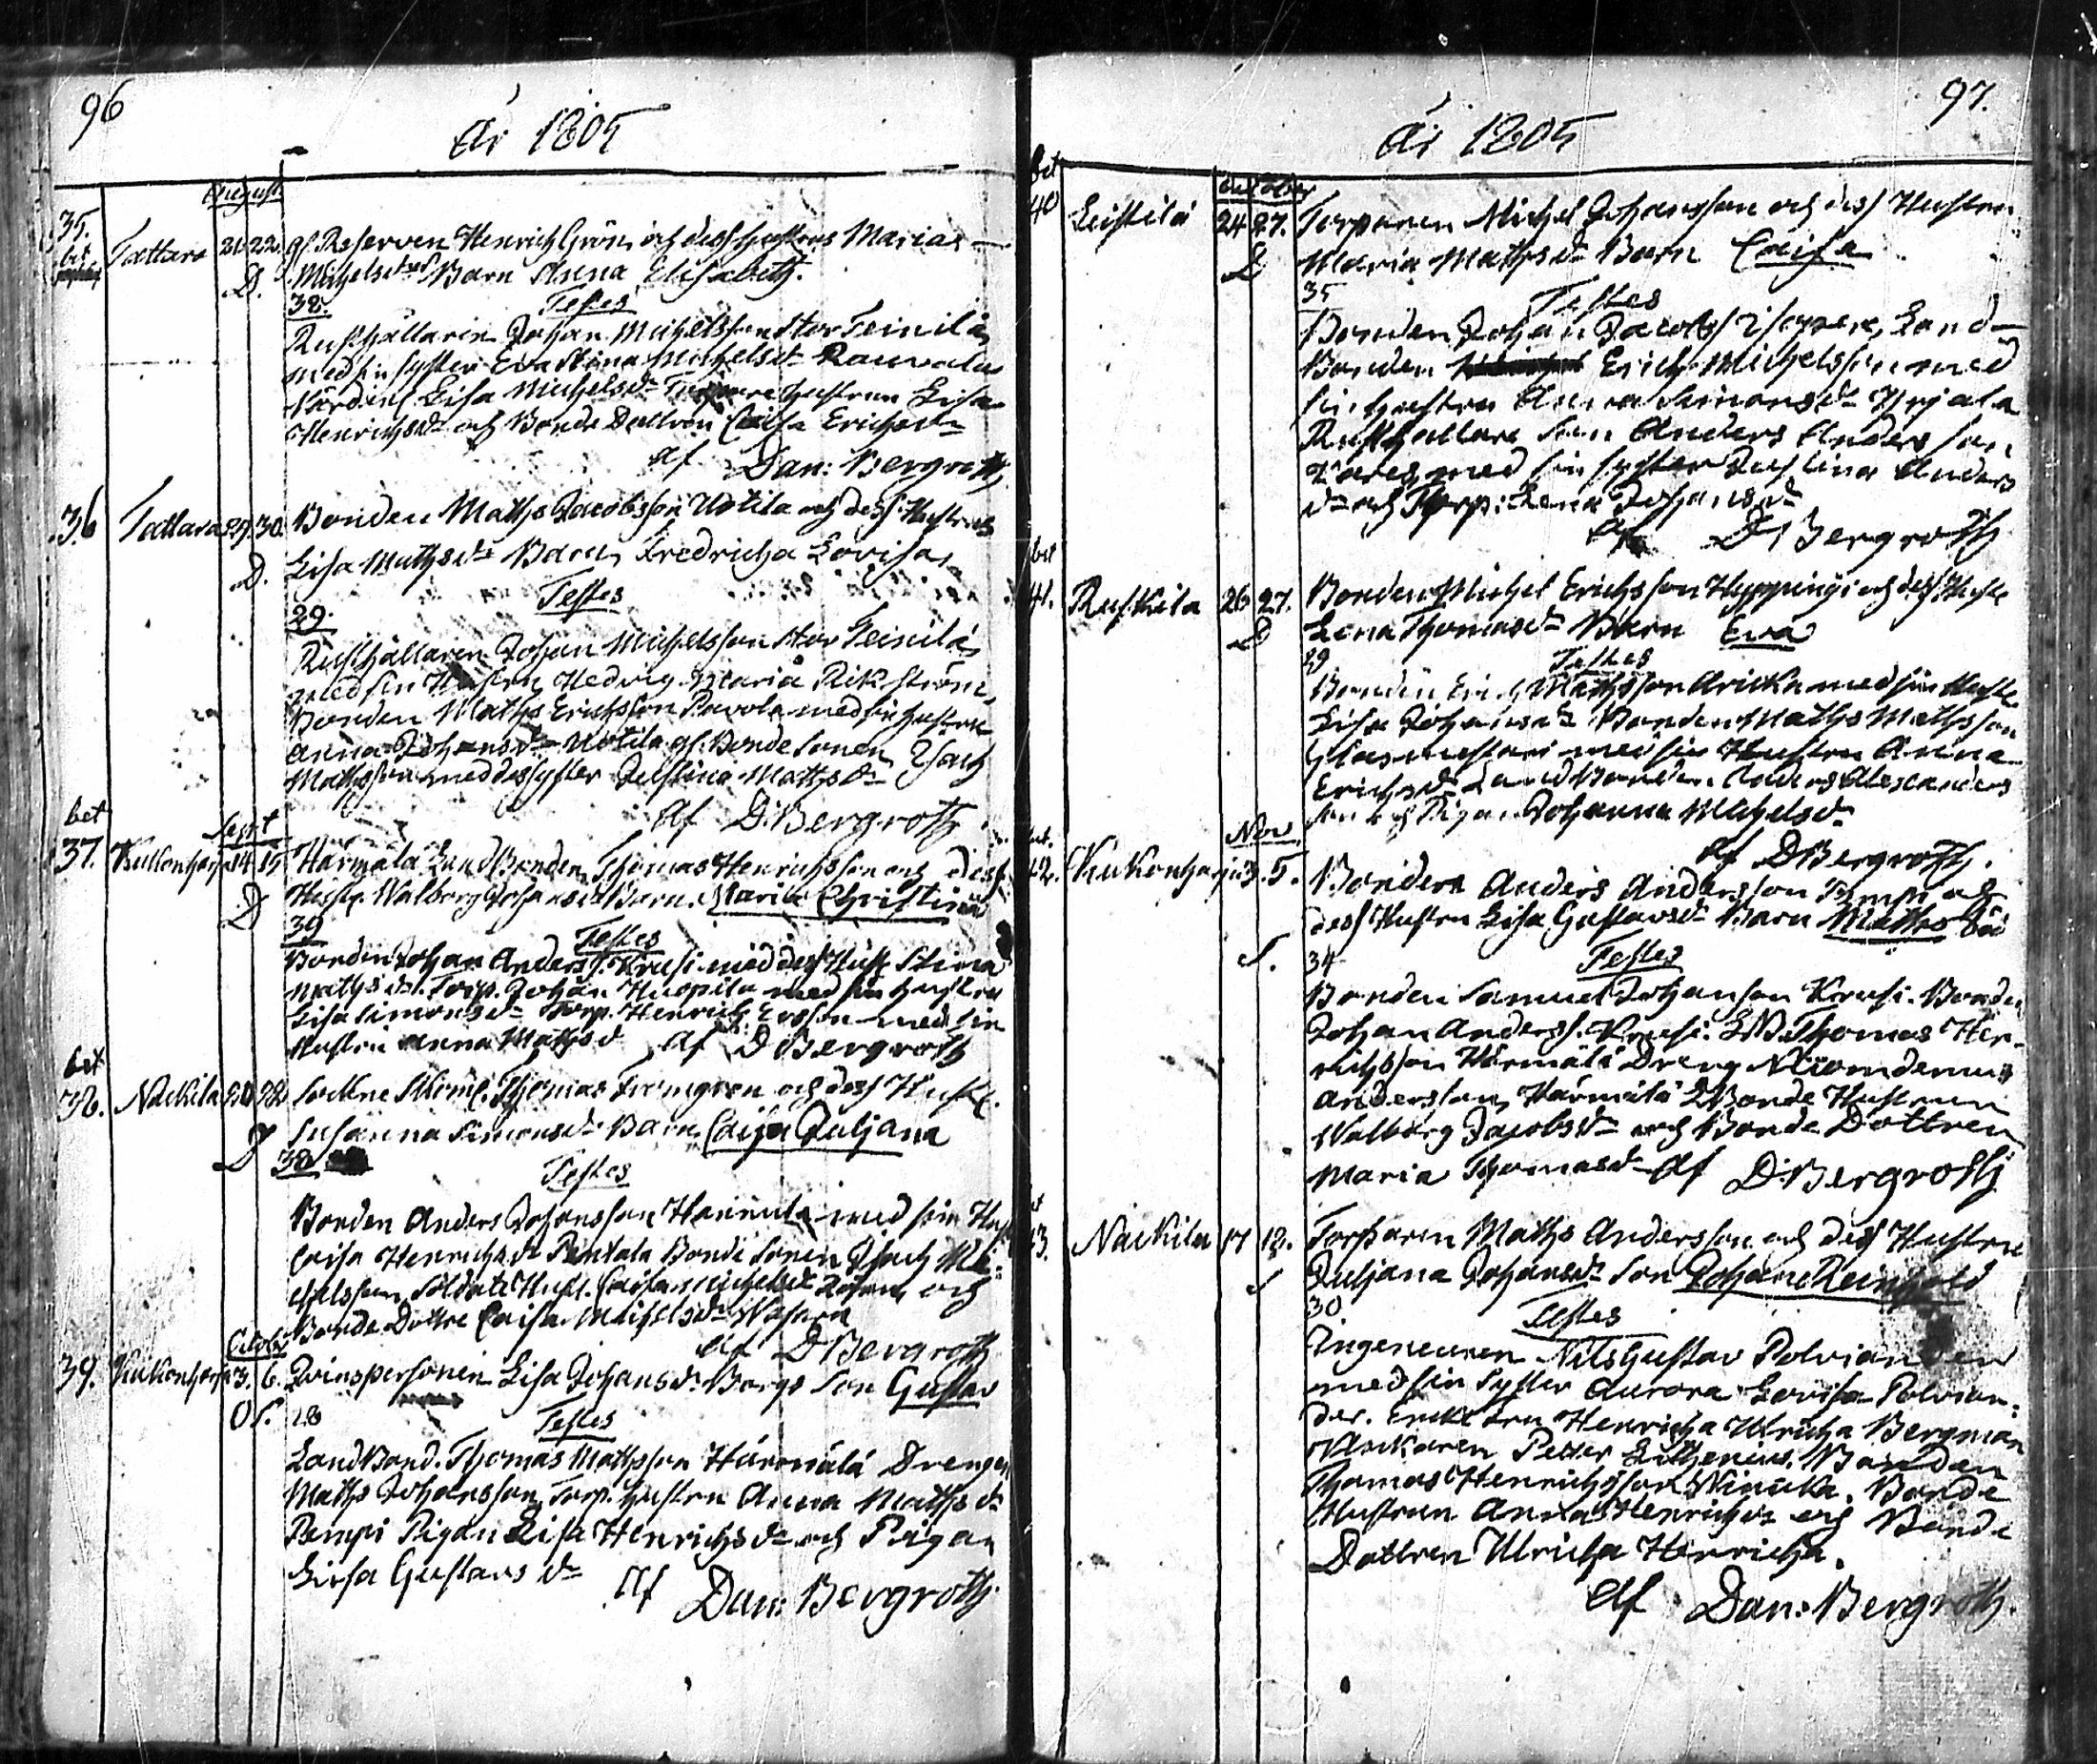 96
År 1805
August
35. bet Tattara 21 22. gl. Reserven Henrich Grön och dess Hustrus Marias
D. Michelsdrs Barn Anna Elisabeth.
38. Testes
Rusthållaren Johan Michelsson Stor Teinilä
med sin syster Eva Stina Michelsdr Rauvola
Värdin. Lisa Michelsdr hustrun Lisa
Henrichsdr och Bonde Dottren Caisa Erichsdr
af Dan: Bergroth
36 Tattara 29. 30. Bonden Matths Jacobsson Uotila och dess Hustrus
D. Lisa Mathsdr Barn Fredricha Lovisa
29. Testes
Rusthållaren Johan Michelsson Stor Teinilä
med sin Hustru Hedvig Maria Rikström,
Bonden Maths Erichsson Pavola med sin hustru
Anna Johansdr Uotila gl. Bonde Sonen Isach
Mathsson med des syster Justina Mathsdr
af D: Bergroth
bet Sept
37. Kukonharja 14 15 Härmälä LandBonden Thomas Henrichsson och dess
D Hustr. Walborg Johansdr Barn. Maria Christina
39 Testes
Bonden Johan Anderss. Krusi med des Hust Stina
Mathsdr. Torp. Johan Huopila med sin hustru
Lisa Simonsdr Torp. Henrich Ersson med sin
Hustru Anna Mathsdr af D Bergroth
bet
38. Nackila 20 22 Sockne Skrined. Thomas Fromgren och dess Hustr.
D Susanna Simonsdr Barn Caisa Juljana
38 Testes
Bonden Anders Johansson Hannula med sin Hust
Caisa Henrichsdr Pentala Bonde Sonen Isach Mi-
chelsson Soldate Hust. Caisa Michelsdr och
Bonde Dottre Caisa Michelsdr
af D Bergroth
October
39. Kukonharja 3. 6. Qvinspersonen Lisa Johansdr Borgs Son Gustav
28 Testes
LandBond. Thomas Mathsson Härmälä Drengen
Maths Johansson Torp. hustrn Anna Mathsdr
Pempi Pigan Lisa Henrichsdr och Pigan
Lisa Gustavsdr af Dan: Bergroth
97.
År 1805
bet October
40 Leistilä 24 27. Torparen Michel Johansson och dess Hustru
D Maria Mathsdr Barn Caisa
35 Testes
Bonden Johan Jacobss Isopere, Land-
Bonden Erich Michelsson med
sin hustru Anna Simonsdr Yrjälä
Rusthållare Son Anders Andersson
med sin syster Justina Anders
dr och Torp: Lena Johansdr
af D Bergroth
bet
41. Ruskila 26 27. Bonden Michel Erichsson Hyppingi och dess Hustr
D Lena Thomasdr Barn Eva
29 Testes
Bonden Erich Mathsson Arickа med sin Hustr
Lisa Johansdr Bonden Maths Mathsson
Glasmestari med sin Hustru Anna
Erichsdr LandBonden Anders Alexanders
son och Pigan Johanna Michelsdr
af D Bergroth.
Nov
42. Kukonharja 3. 5. Bonden Anders Andersson Pempi och
S. dess Hustru Lisa Gustavsdr Barn Maths
34 Testes
Bonden Samuel Johansson Krusi. Bonden
Johan Anderss. Krusi. LB. Thomas Hen-
richsson Härmälä Dreng Nicomdenus
Andersson, Härmälä LBonde Hustrun
Walborg Jacobsdr och Bonde Dottren
Maria Thomasdr af D: Bergroth
43. Nackila 17 18. Torparen Maths Andersson och dess Hustru
Juljana Johansdr Son Johan Reinhold
30 Testes
Ingeneuren Nils Gustav Polviander
med sin Syster Aurora Lovisa Polvian-
der. Henricha Ulricha Bergman
Petter Bonden
Thomas Henrichsson Ninicka. Bonde
Hustrun Anna Henrichsdr och Bonde
Dottren Ulricha Henricha.
af Dan: Bergroth.